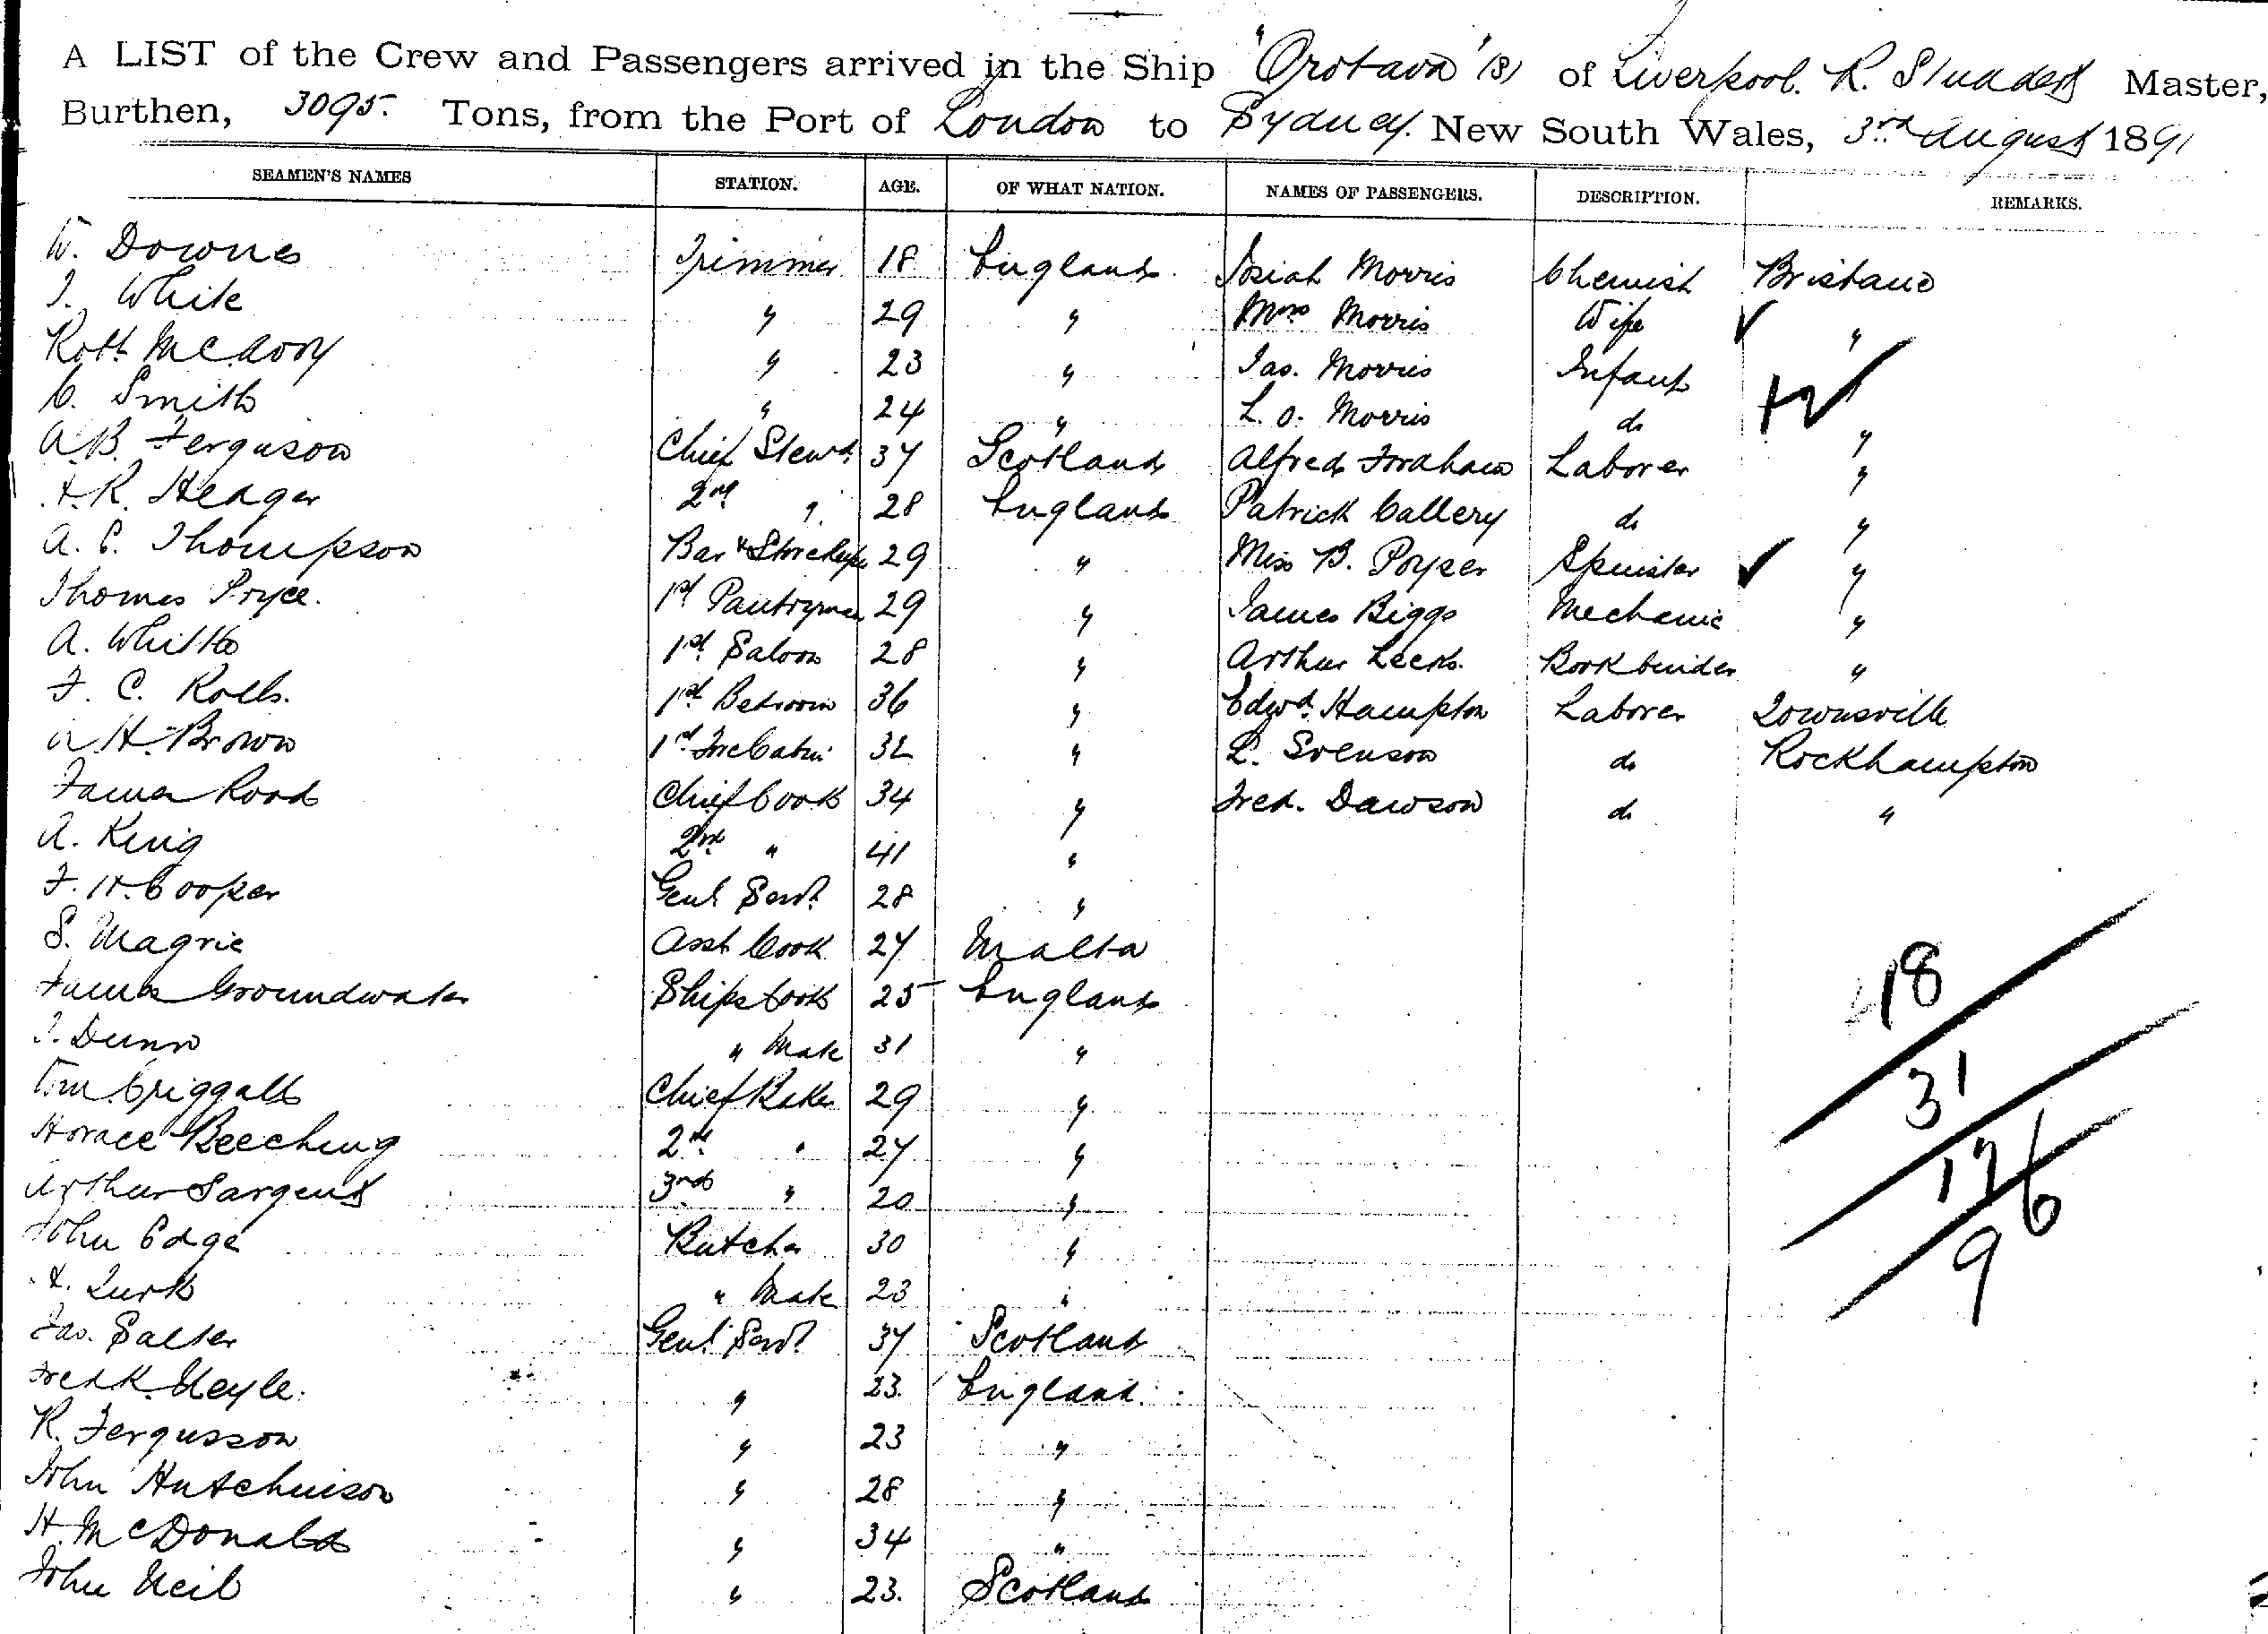 A LIST of the Crew and Passengers arrived in the Ship "Orotava" (8) of Liverpool. R. Master,
Burthen, 3095. Tons, from the Port of London to Sydney. New South Wales, 3rd August 1891
SEAMEN'S NAMES STATION. AGE. OF WHAT NATION. NAMES OF PASSENGERS. DESCRIPTION. REMARKS.
W. Downes Trimmer 18 England Josiah Morris Chemist Brisbane
J. White " 29 " Mrs Morris Wife "
Robt " 23 " Jas. Morris Infant
C. Smith " 24 " L. O. Morris do "
A.B. Ferguson Chief Stewd. 37 Scotland Alfred Laborer "
R. Heager 2nd " 28 England Patrick Callery do "
A. E. Thompson Bar & 29 " Miss B. Poyser Spinster "
Thomas Pryce. 1st Pantryman 29 " James Biggs Mechanic "
A. 1st Saloon 28 " Arthur Leeks. Bookbinder "
F. C. Rolls. 1st Bedroom 36 " Edwd. Hampton Laborer Townsville
H. Brown 1st 32 " L. Svenson do Rockhampton
James Rood Chief Cook 34 " Fred. Dawson do "
A. King 2nd " 41 "
F. H. Cooper Genl Servt 28 "
S. Magrie Asst Cook 27 Malta
James Groundwater Ships Cook 25 England
J. Dunn " Mate 31 "
Wm. Criggall Chief Baker 29 "
Horace Beeching 2nd " 27 "
Arthur Sargent 3rd " 20 "
John Edge Butcher 30 "
Turk " Mate 23 "
Jas. Salter Genl Servt 37 Scotland
Fredk. " 23. England
R. Fergusson " 23 "
John Hutchinson " 28 "
H. McDonald " 34 "
John Neil " 23. Scotland
18
31
126
9